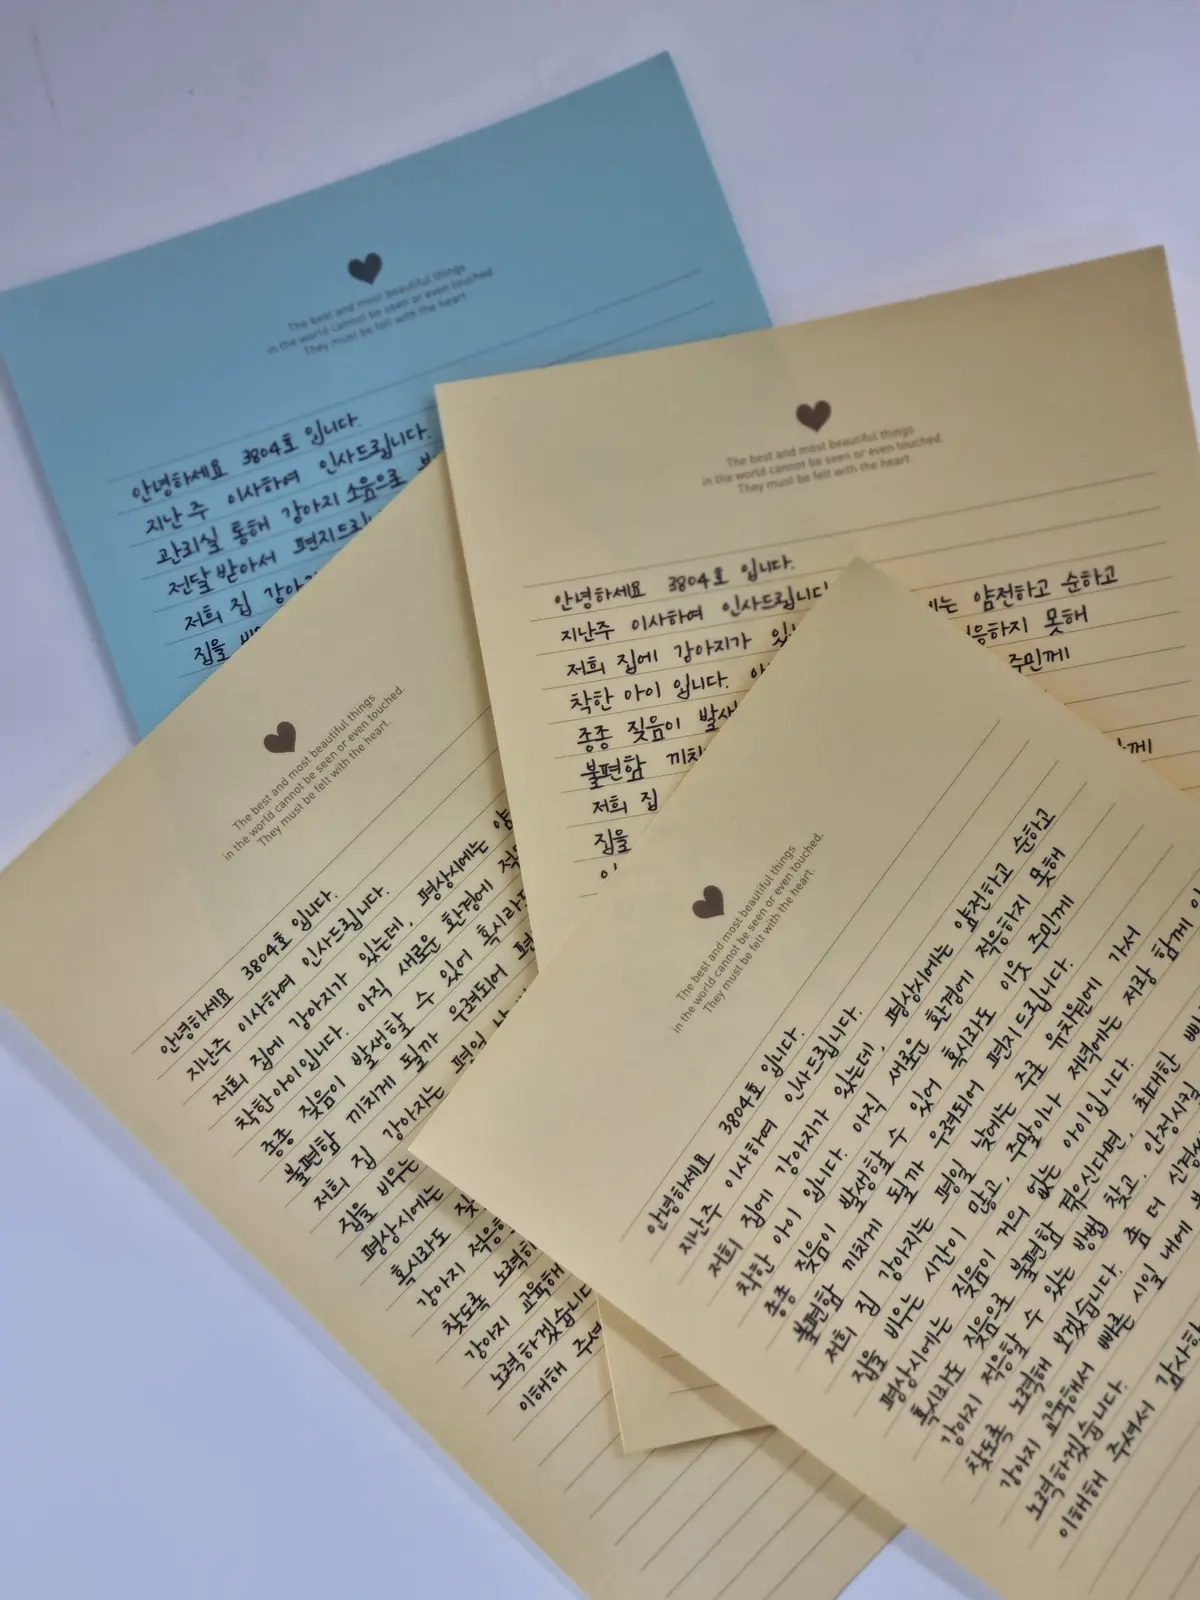 The best and most beautiful things
in the world cannot be seen or even touched
They must be felt with the heart.
안녕하세요 3804호 입니다.
지난 주 이사하여 인사드립니다.
관리실 통해 강아지 소음으로
전달 받아서 편지드립
저희 집 강아
집을
The best and most beautiful things
in the world cannot be seen or even touched
They must be felt with the heart.
안녕하세요 3804호 입니다.
지난주 이사하여 인사드립니다
저희 집에 강아지가 있 는 얌전하고 순하고
착한 아이 입니다. 응하지 못해
종종 짖음이 발생 주민께
불편함 끼치
저희 집 함께
집을
The best and most beautiful things
in the world cannot be seen or even touched.
They must be felt with the heart.
안녕하세요 3804호 입니다.
지난주 이사하여 인사드립니다.
저희 집에 강아지가 있는데, 평상시에는 얌
착한 아이입니다. 아직 새로운 환경에 적
종종 짖음이 발생할 수 있어 혹시라도
불편함 끼치게 될까 우려되어 편
저희 집 강아지는 평일
집을 비우는
평상시에는
혹시라도 짖
강아지 적응
찾도록 노력하
강아지 교육해
노력하겠습니다
이해해 주셔
The best and most beautiful things
in the world cannot be seen or even touched.
They must be felt with the heart.
안녕하세요 3804호 입니다.
지난주 이사하여 인사드립니다.
저희 집에 강아지가 있는데, 평상시에는 얌전하고 순하고
착한 아이 입니다. 아직 새로운 환경에 적응하지 못해
종종 짖음이 발생할 수 있어 혹시라도 이웃 주민께
불편함 끼치게 될까 우려되어 편지드립니다.
저희 집 강아지는 평일 낮에는 주로 유치원에 가서
집을 비우는 시간이 많고, 주말이나 저녁에는 저랑 함께
평상시에는 짖음이 거의 없는 아이입니다.
혹시라도 짖음으로 불편함 겪으신다면, 최대한
강아지 적응할 수 있는 방법 찾고, 안정시킬
찾도록 노력해 보겠습니다. 좀 더 신경
강아지 교육해서 빠른 시일 내에
노력하겠습니다.
이해해 주셔서 감사